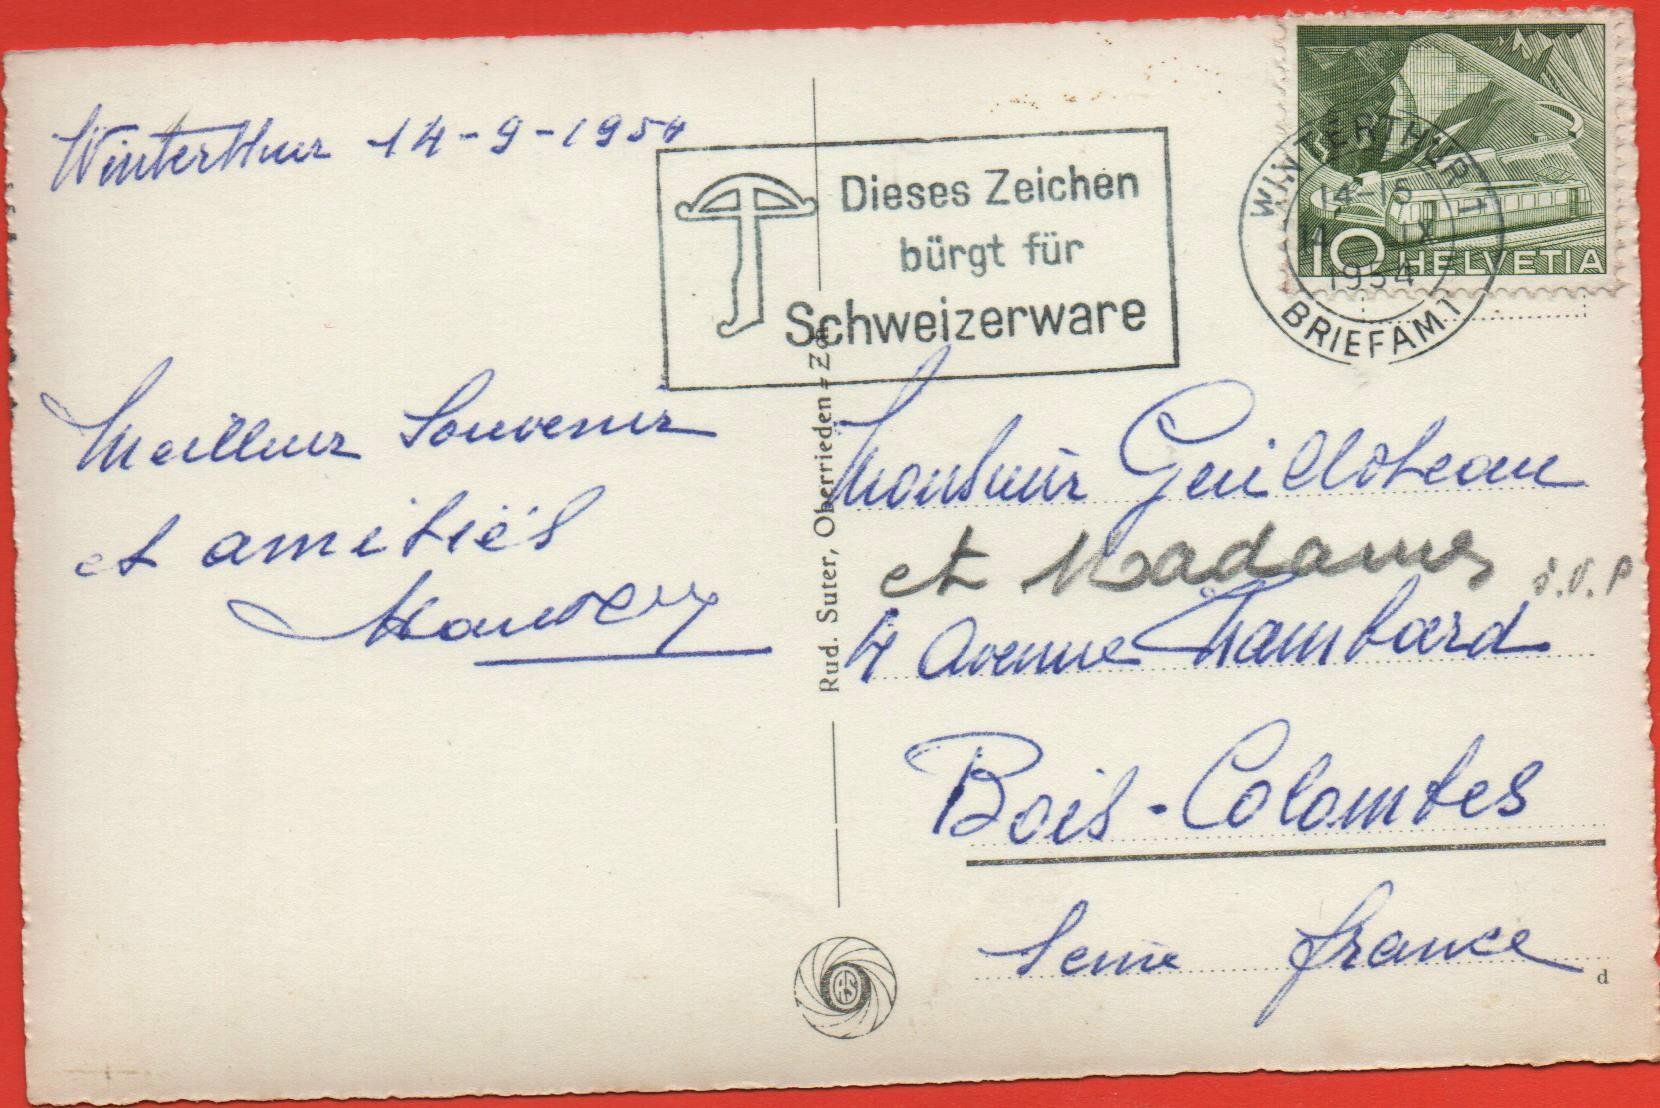 Winterthur 14-9-1954
Dieses Zeichen
bürgt für
Schweizerware
WINTERTHUR 1
14 15
X
1954
BRIEFAMT
10 HELVETIA
Meilleur Souvenir
et amitiés
Rud. Suter, Oberrieden = Zch
Monsieur Guilloteau
et Madame s.V.P
4 Avenue Chambard
Bois-Colombes
Seine france
d